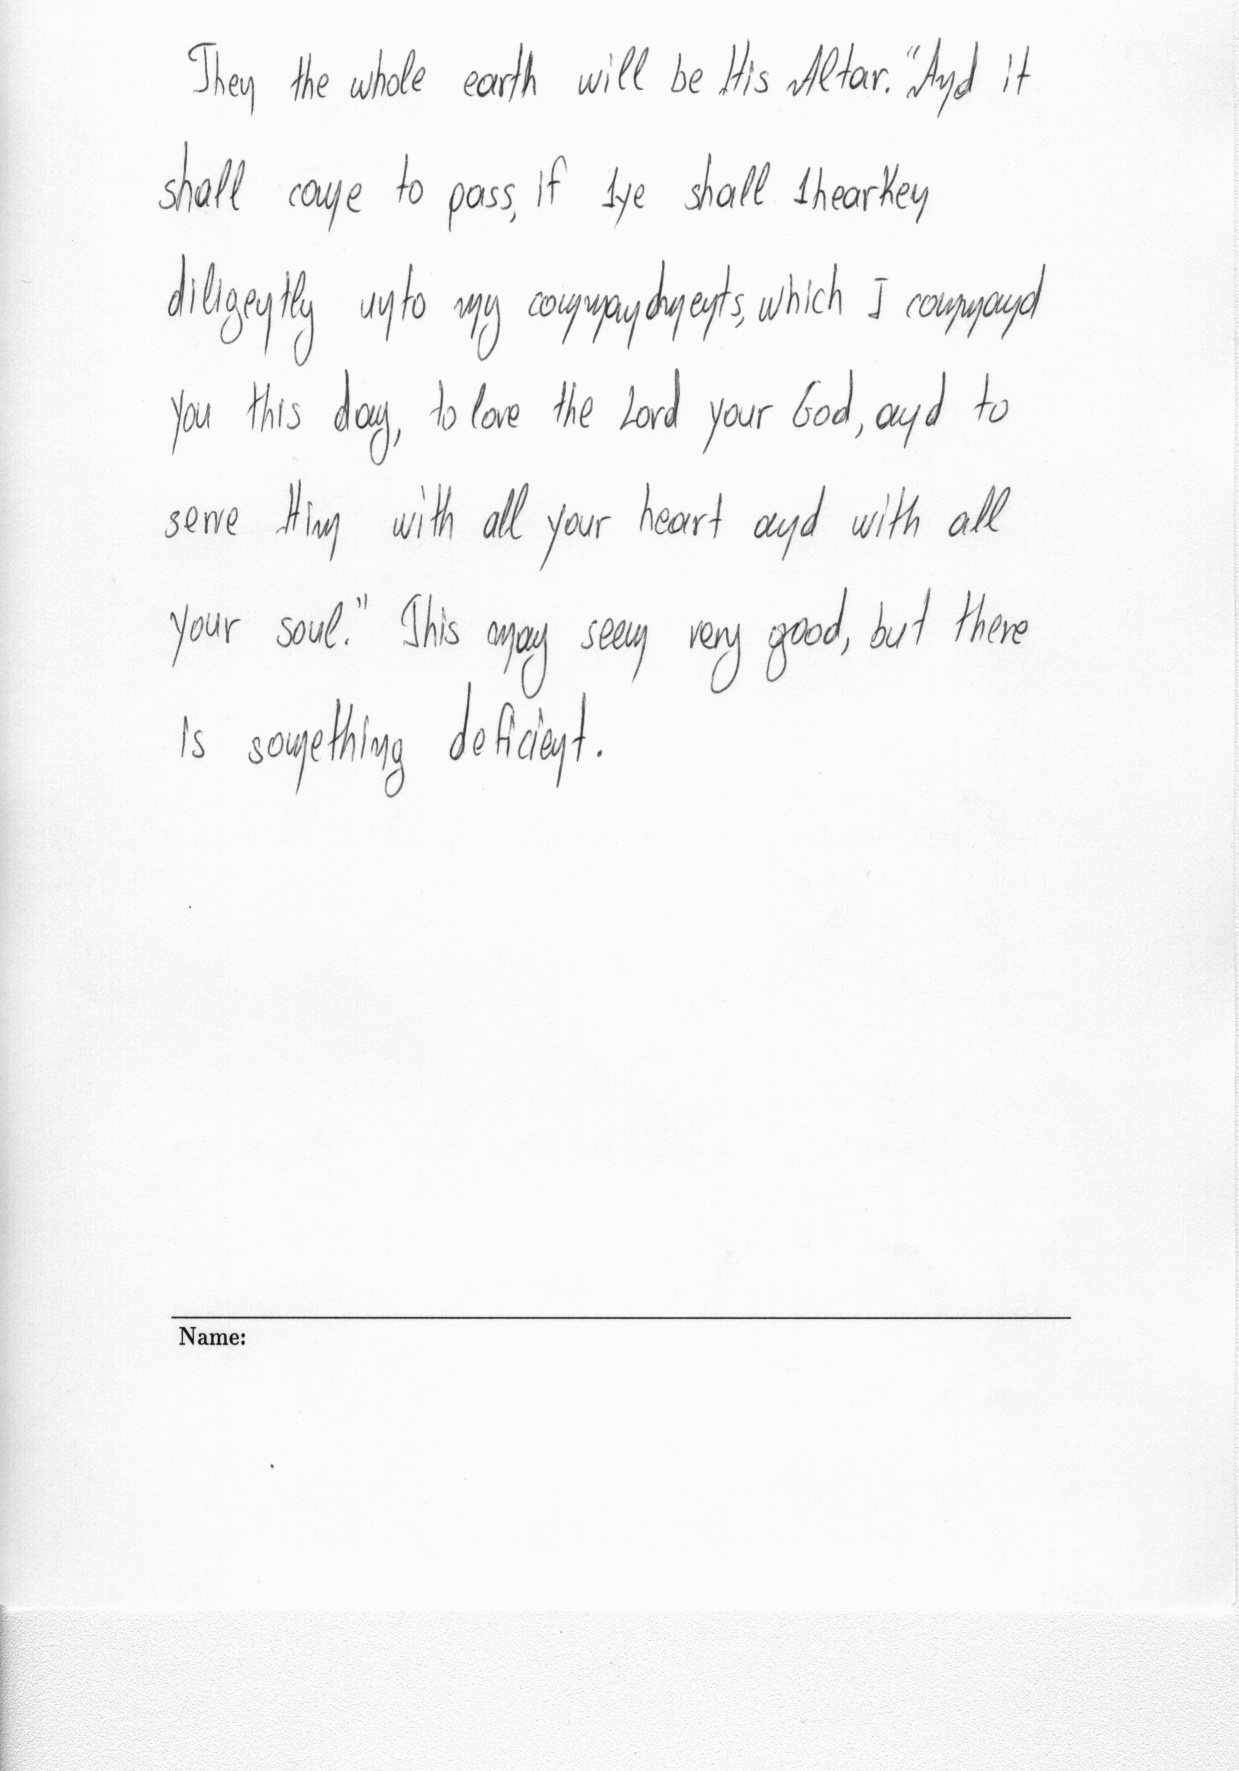 Then the whole earth will be His Altar. "And it
shall come to pass, if 1ye shall 1hearken
diligently unto my commandments, which I command
you this day, to love the Lord your God, and to
serve Him with all your heart and with all
your soul." This may seem very good, but there
is something deficient.
Name: